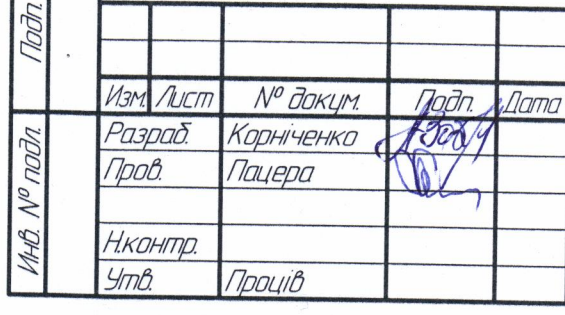 Подп.
Инв. № подл.
Изм. Лист № докум. Подп. Дата
Разраб. Корніченко
Пров. Пацера
Н.контр.
Утв. Проців